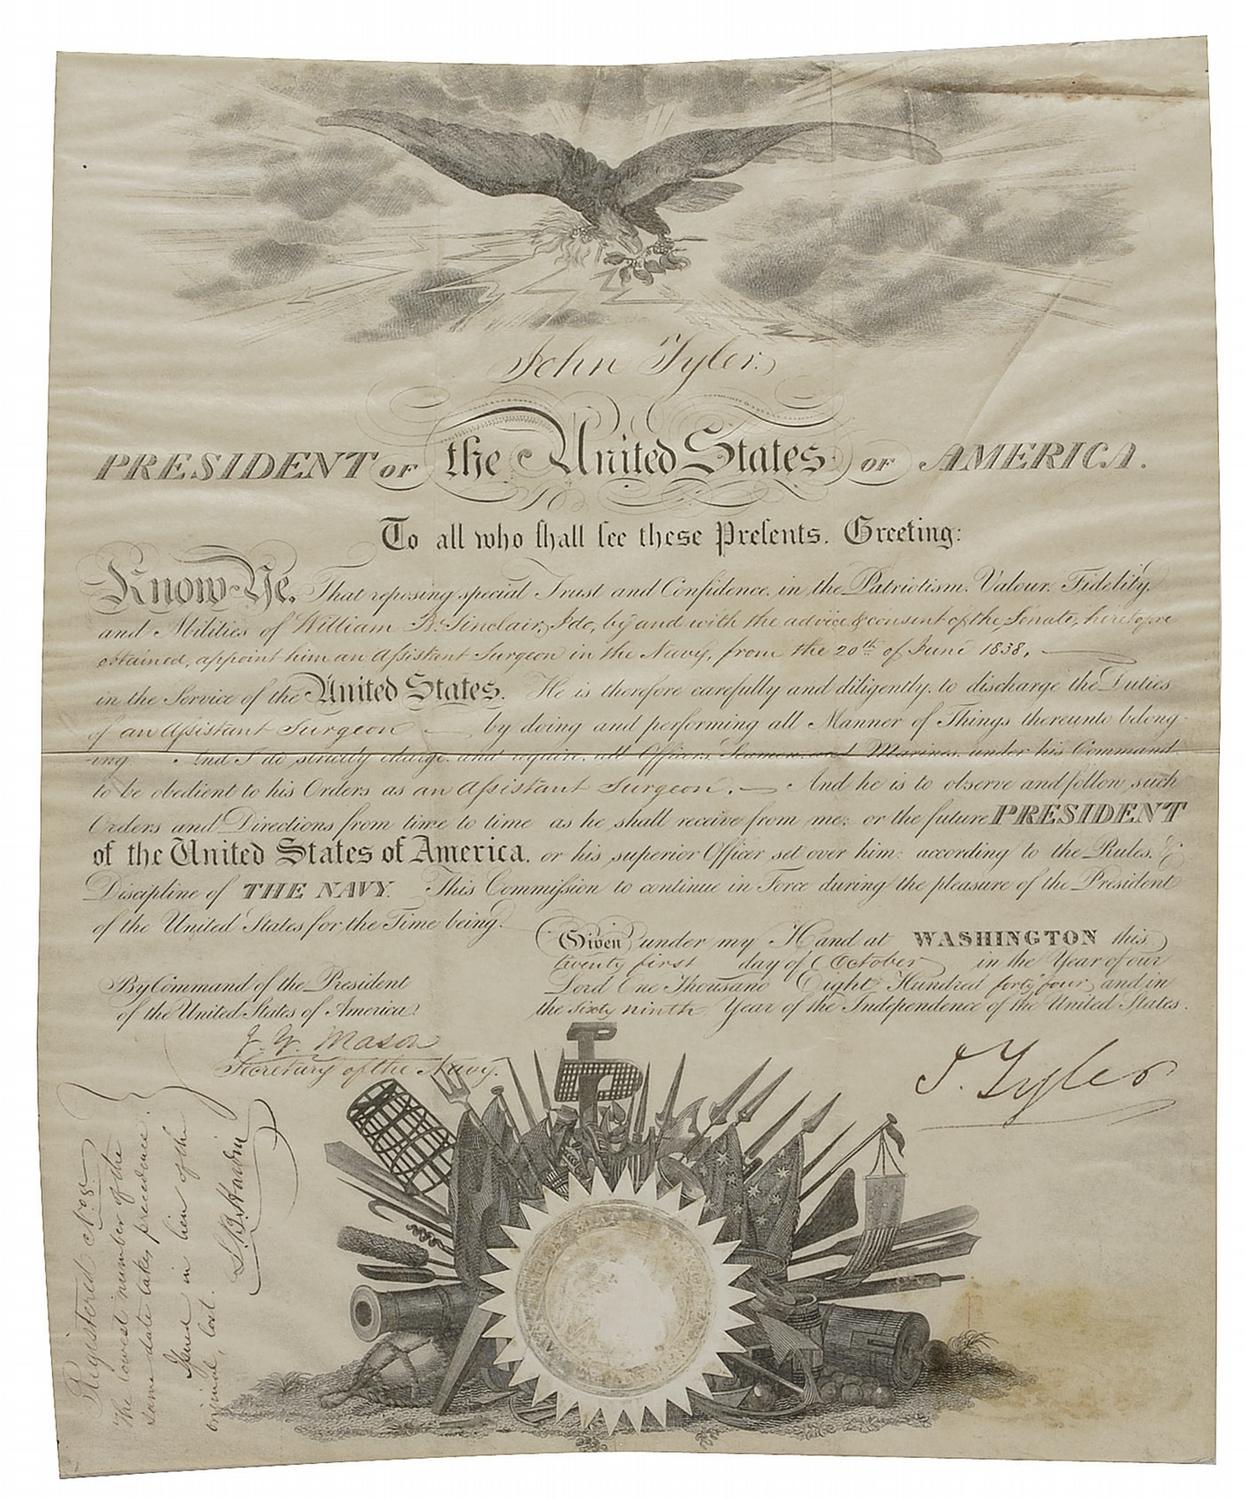 John Tyler.
PRESIDENT OF the United States OF AMERICA.
To all who shall see these Presents, Greeting:
Know Ye, That reposing special Trust and Confidence in the Patriotism, Valour, Fidelity,
and Abilities of William B. Sinclair, I do, by and with the advice & consent of the Senate, heretofore
obtained, appoint him an Assistant Surgeon in the Navy, from the 20th of June 1838,
in the Service of the United States. He is therefore carefully and diligently to discharge the Duties
of an Assistant Surgeon by doing and performing all Manner of Things thereunto belong-
ing. And I do strictly charge and require all Officers, Seamen and Marines under his Command
to be obedient to his Orders as an Assistant Surgeon. And he is to observe and follow such
Orders and Directions from time to time as he shall receive from me, or the future PRESIDENT
of the United States of America, or his superior Officer set over him, according to the Rules, &
Discipline of THE NAVY. This Commission to continue in Force during the pleasure of the President
of the United States for the Time being.
Given under my Hand at WASHINGTON this
twenty first day of October in the Year of our
Lord One Thousand Eight Hundred forty four, and in
the sixty ninth Year of the Independence of the United States.
By Command of the President
of the United States of America.
J. Y. Mason
Secretary of the Navy.
J. Tyler
Registered No 8.
The lowest number of the
same date takes precedence.
Issued in lieu of the
original, lost.
L. B. Hardin